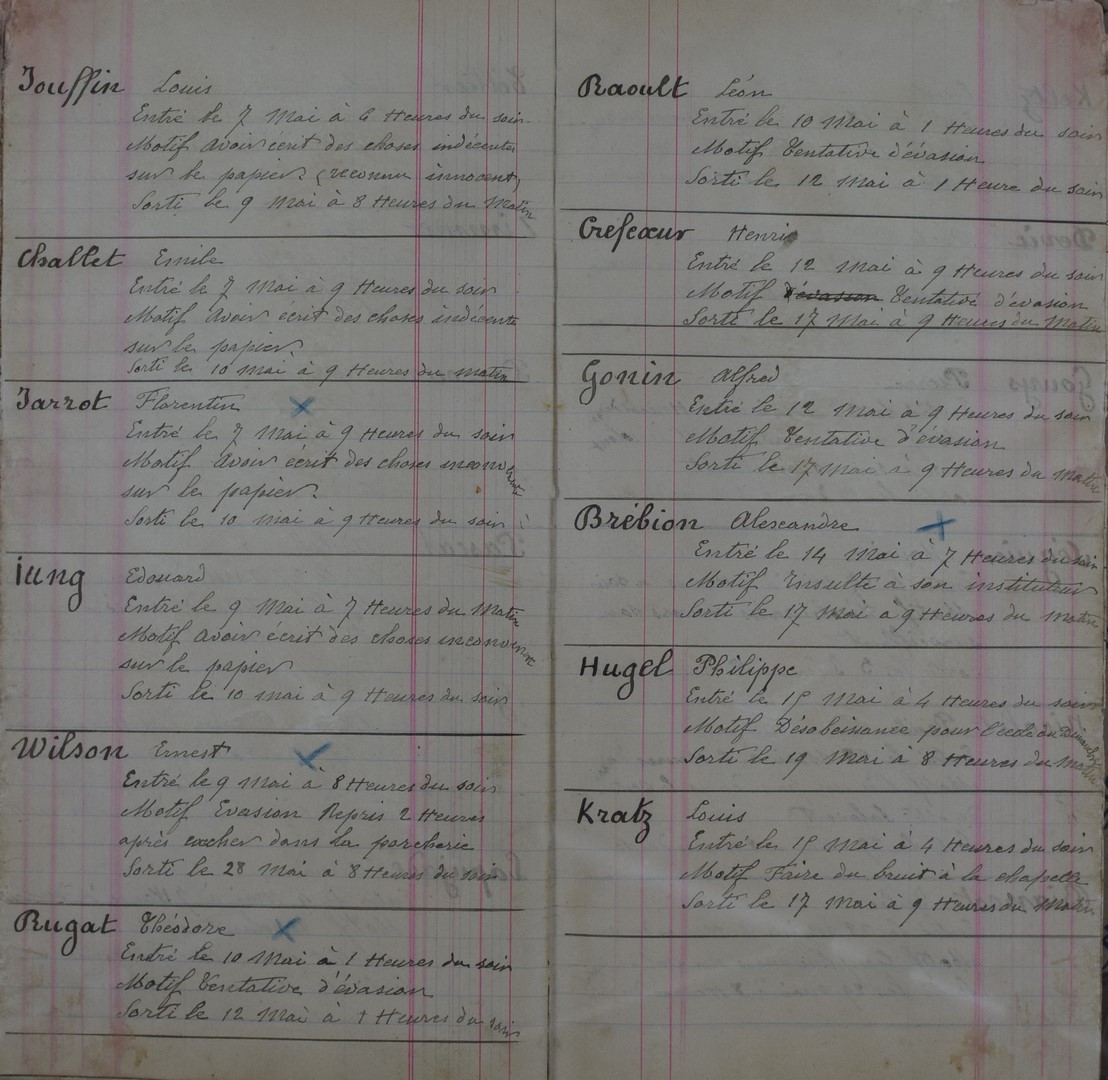 Jouffin Louis
Entré le 7 Mai à 6 Heures du soir
Motif Avoir écrit des choses indécentes
sur le papier. (reconnu innocent)
Sorti le 9 Mai à 8 Heures du Matin
Challet Emile
Entré le 7 Mai à 9 Heures du soir
Motif Avoir écrit des choses indécente
sur le papier
Sorti le 10 Mai à 9 Heures du matin
Jarrot Florentin
Entré le 7 Mai à 9 Heures du soir
Motif Avoir écrit des choses inconvenante
sur le papier.
Sorti le 10 Mai à 9 Heures du soir
iung Edouard
Entré le 9 Mai à 7 Heures du Matin
Motif Avoir écrit des choses inconvenante
sur le papier
Sorti le 10 Mai à 9 Heures du soir
Wilson Ernest
Entré le 9 Mai à 8 Heures du soir
Motif Evasion Repris 2 Heures
après cacher dans la porcherie
Sorti le 28 Mai à 8 Heures du soir
Rugat Théodore
Entré le 10 Mai à 1 Heures du soir
Motif Tentative d'évasion
Sorti le 12 Mai à 1 Heures du soir
Raoult Léon
Entré le 10 Mai à 1 Heures du soir
Motif Tentative d'évasion
Sorti le 12 Mai à 1 Heure du soir
Crefcœur Henri
Entré le 12 Mai à 9 Heures du soir
Motif Tentative d'évasion
Sorti le 17 Mai à 9 Heures du Matin
Gonin Alfred
Entré le 12 Mai à 9 Heures du soir
Motif Tentative d'évasion
Sorti le 17 Mai à 9 Heures du matin
Brébion Alexandre
Entré le 14 Mai à 7 Heures du soir
Motif Insulte à son instituteur
Sorti le 17 Mai à 9 Heures du matin
Hugel Philippe
Entré le 15 Mai à 4 Heures du soir
Motif Désobeissance pour l'école du Dimanche
Sorti le 19 Mai à 8 Heures du Matin
Kratz Louis
Entré le 15 Mai à 4 Heures du soir
Motif Faire du bruit à la chapelle
Sorti le 17 Mai à 9 Heures du Matin